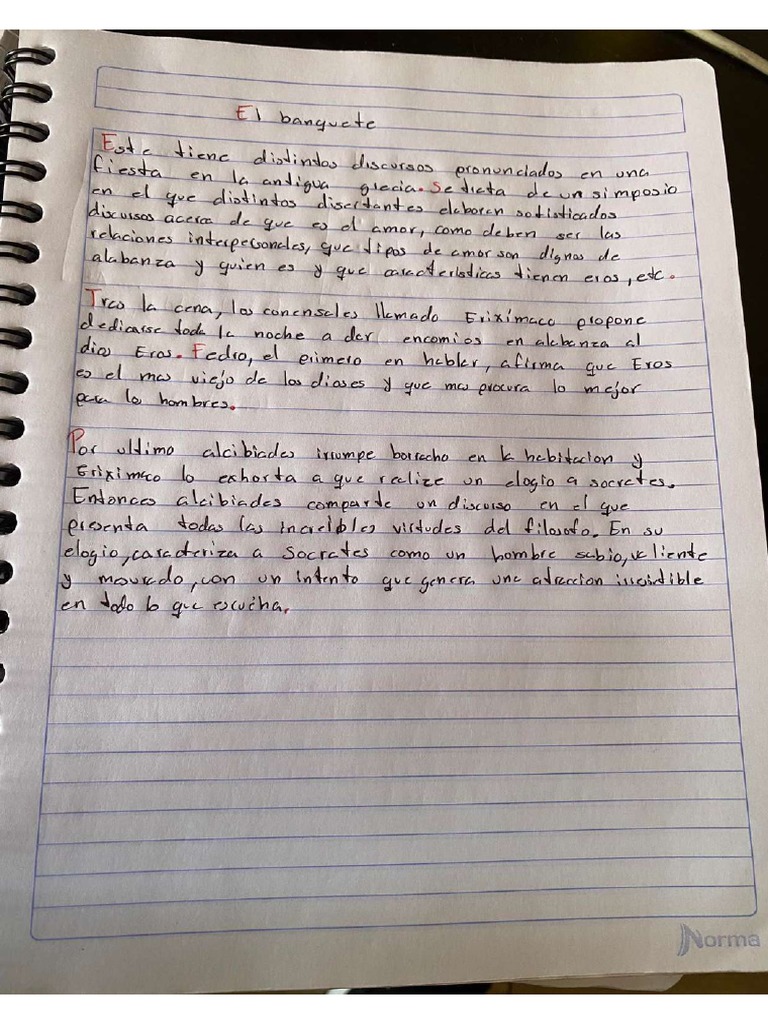 El banquete
Este tiene distintos discursos pronunciados en una
fiesta en la antigua grecia. Se trata de un simposio
en el que distintos disertantes elaboren sofisticados
discursos acerca de que es el amor, como deben ser las
relaciones interpersonales, que tipos de amor son dignas de
alabanza y quien es y que características tienen eros, etc.
Tras la cena, los comensales llamado Erixímaco propone
dedicarse toda la noche a dar encomios en alabanza al
dios Eros. Fedro, el primero en hablar, afirma que Eros
es el mas viejo de los dioses y que mas procura lo mejor
para lo hombres.
Por ultimo alcibiades irrumpe borracho en la habitacion y
Eriximaco lo exhorta a que realize un elogio a socretes.
Entonces alcibiades comparte un discurso en el que
presenta todas las increíbles virtudes del filosofo. En su
elogio, caracteriza a Socrates como un hombre sabio, valiente
y mourado, con un intento que genera una atraccion irresistible
en todo lo que escucha.
Norma